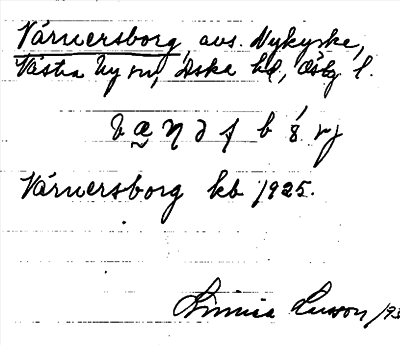 Värnersborg, avs. Nykyrke,
Västra Ny sn, Aska hd, Östg l.
Värnersborg kb 1925.
Linnea Larson /93